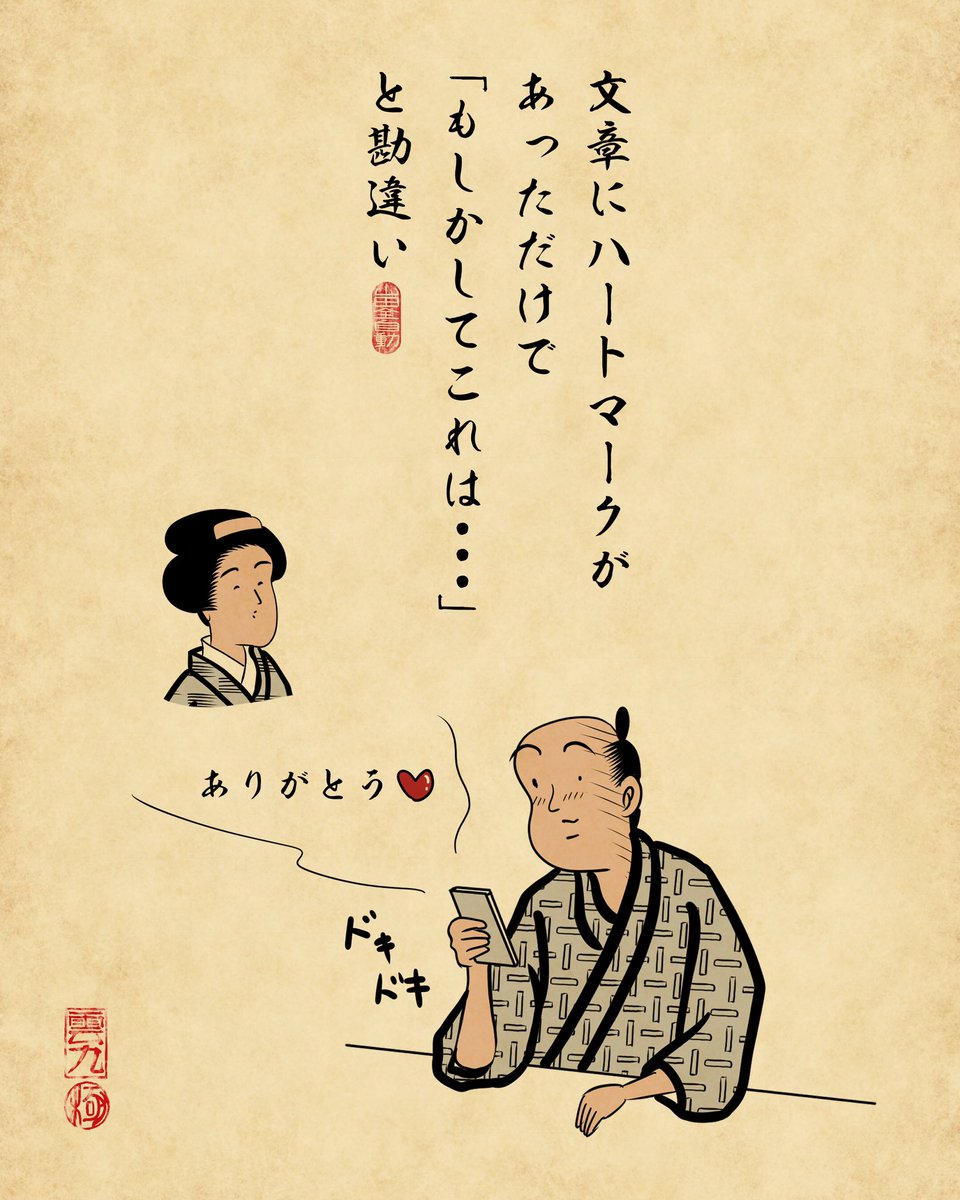 文章にハートマークが
あっただけで
「もしかしてこれは・・・」
と勘違い
ありがとう❤
ドキ
ドキ